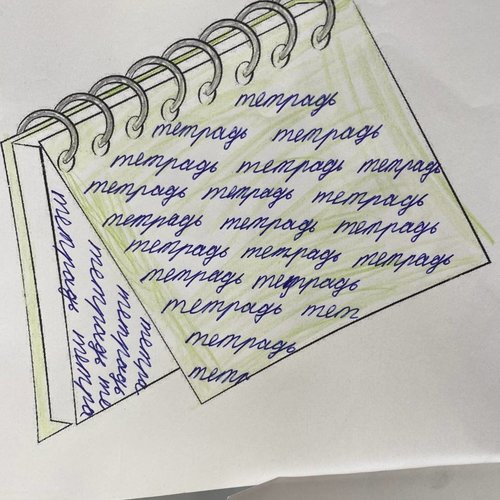 тетрадь
тетрадь тетрадь
тетрадь тетрадь тетрадь
тетрадь тетрадь тетрадь
тетрадь тетрадь тетрадь
тетрадь тетрадь тетрадь
тетрадь тетрадь
тетрадь тет
тетрадь
тетр
тетрадь тетра
тетрадь те
тетрадь
тетра